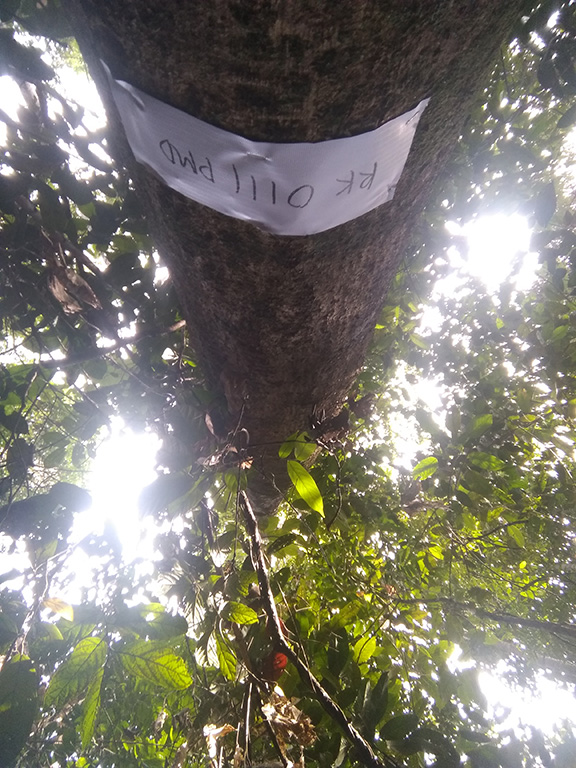 RK 0111 PMD